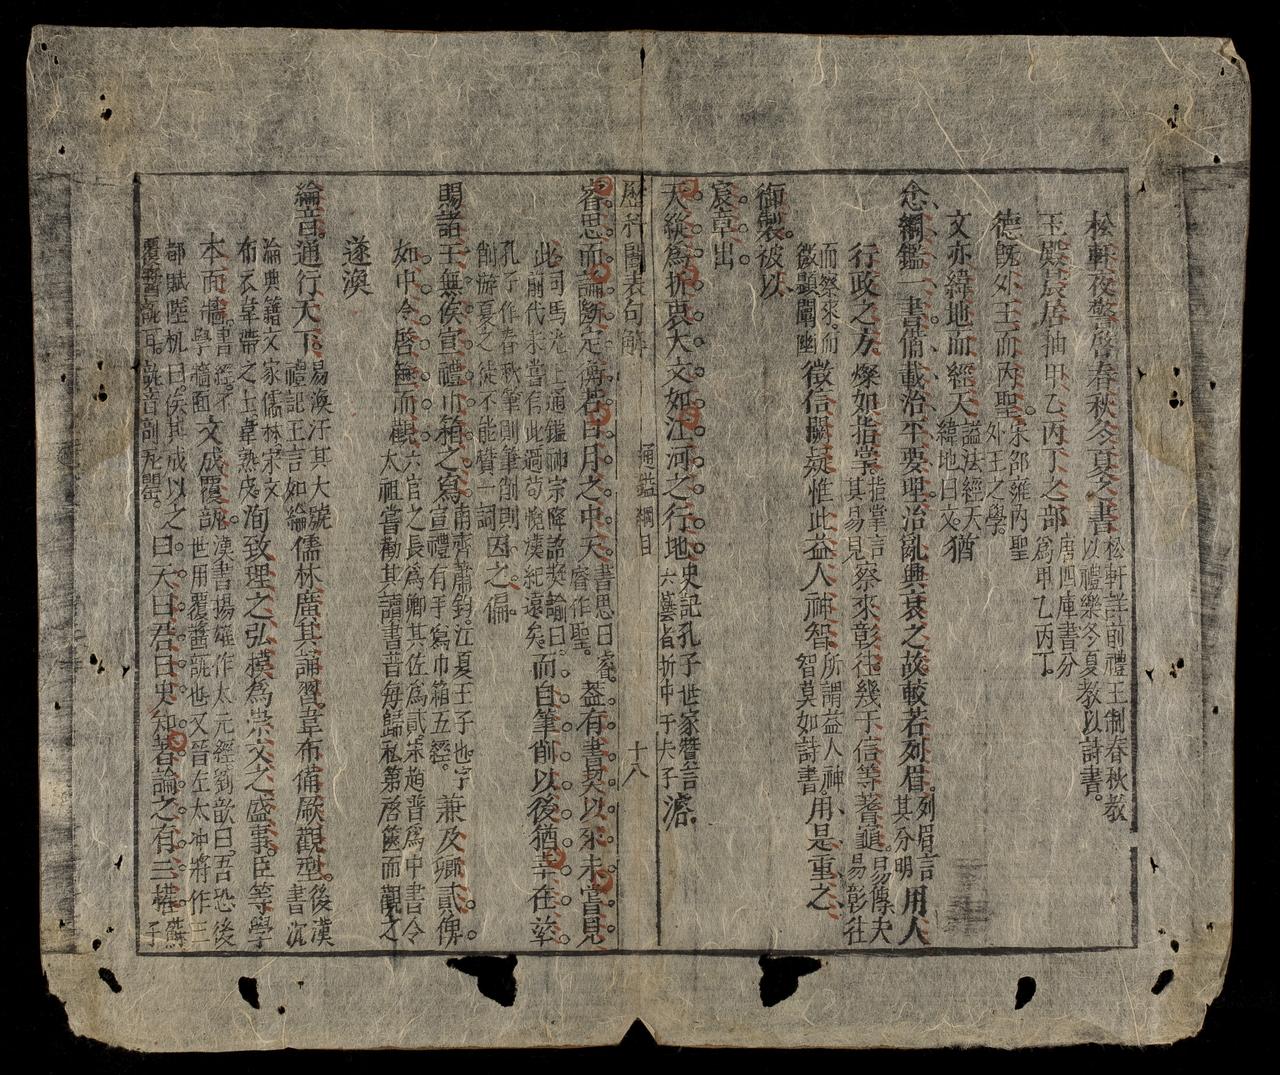 松軒夜警啓春秋冬夏之書松軒註前禮王制春秋教以禮樂冬夏教以詩書
玉殿晨居抽甲乙丙丁之部唐四庫書分為甲乙丙丁
德旣外王而內聖宋邵雍內聖外王之學
文亦緯地而經天謚法經天緯地曰文猶
念綱鑑一書備載治平要理治亂興衰之故較若列眉列眉言其分明用人
行政之方燦如指掌指掌言其易見察來彰往幾于信等蓍龜易傳夫易彰往
而察來而微顯闡幽徵信闕疑惟此益人神智所謂益人神智莫如詩書用是重之
御製被以
宸章出
天縱為折衷大文如江河之行地史記孔子世家贊言六藝者折中于夫子
歷科闈表句解 通鑑綱目 十八
睿思而論斷定褒若日月之中天書思曰睿睿作聖益有書契以來未嘗見
此司馬光上通鑑神宗降詔奬諭曰前代未嘗有此過荀悅漢紀遠矣而自筆削以後猶幸在茲
孔子作春秋筆則筆削則削游夏之徒不能贊一詞因之徧
賜諸王無俟宣禮巾箱之寫南齊蕭鈞江夏王子也字宣禮有手寫巾箱五經兼及卿貳俾
如中令啓匭而觀六官之長為卿其佐為貳宋趙普為中書令太祖嘗勸其讀書普每歸私第啓篋而觀之
遂渙
綸音通行天下易渙汗其大號禮記王言如綸儒林廣其誦習韋布備厥觀型後漢書沉
淪典籍文家儒林宋文布衣韋帶之士韋孰戌洵致理之弘模為崇文之盛事臣等學
本面牆書經不學牆面文成覆瓿漢書揚雄作太元經劉歆曰吾恐後世用覆醬瓿也又晉左太冲將作三
都賦陸机曰俟其成以之覆醬瓿耳瓿音剖瓦罌曰天曰君曰史知著論之有三權蘇子